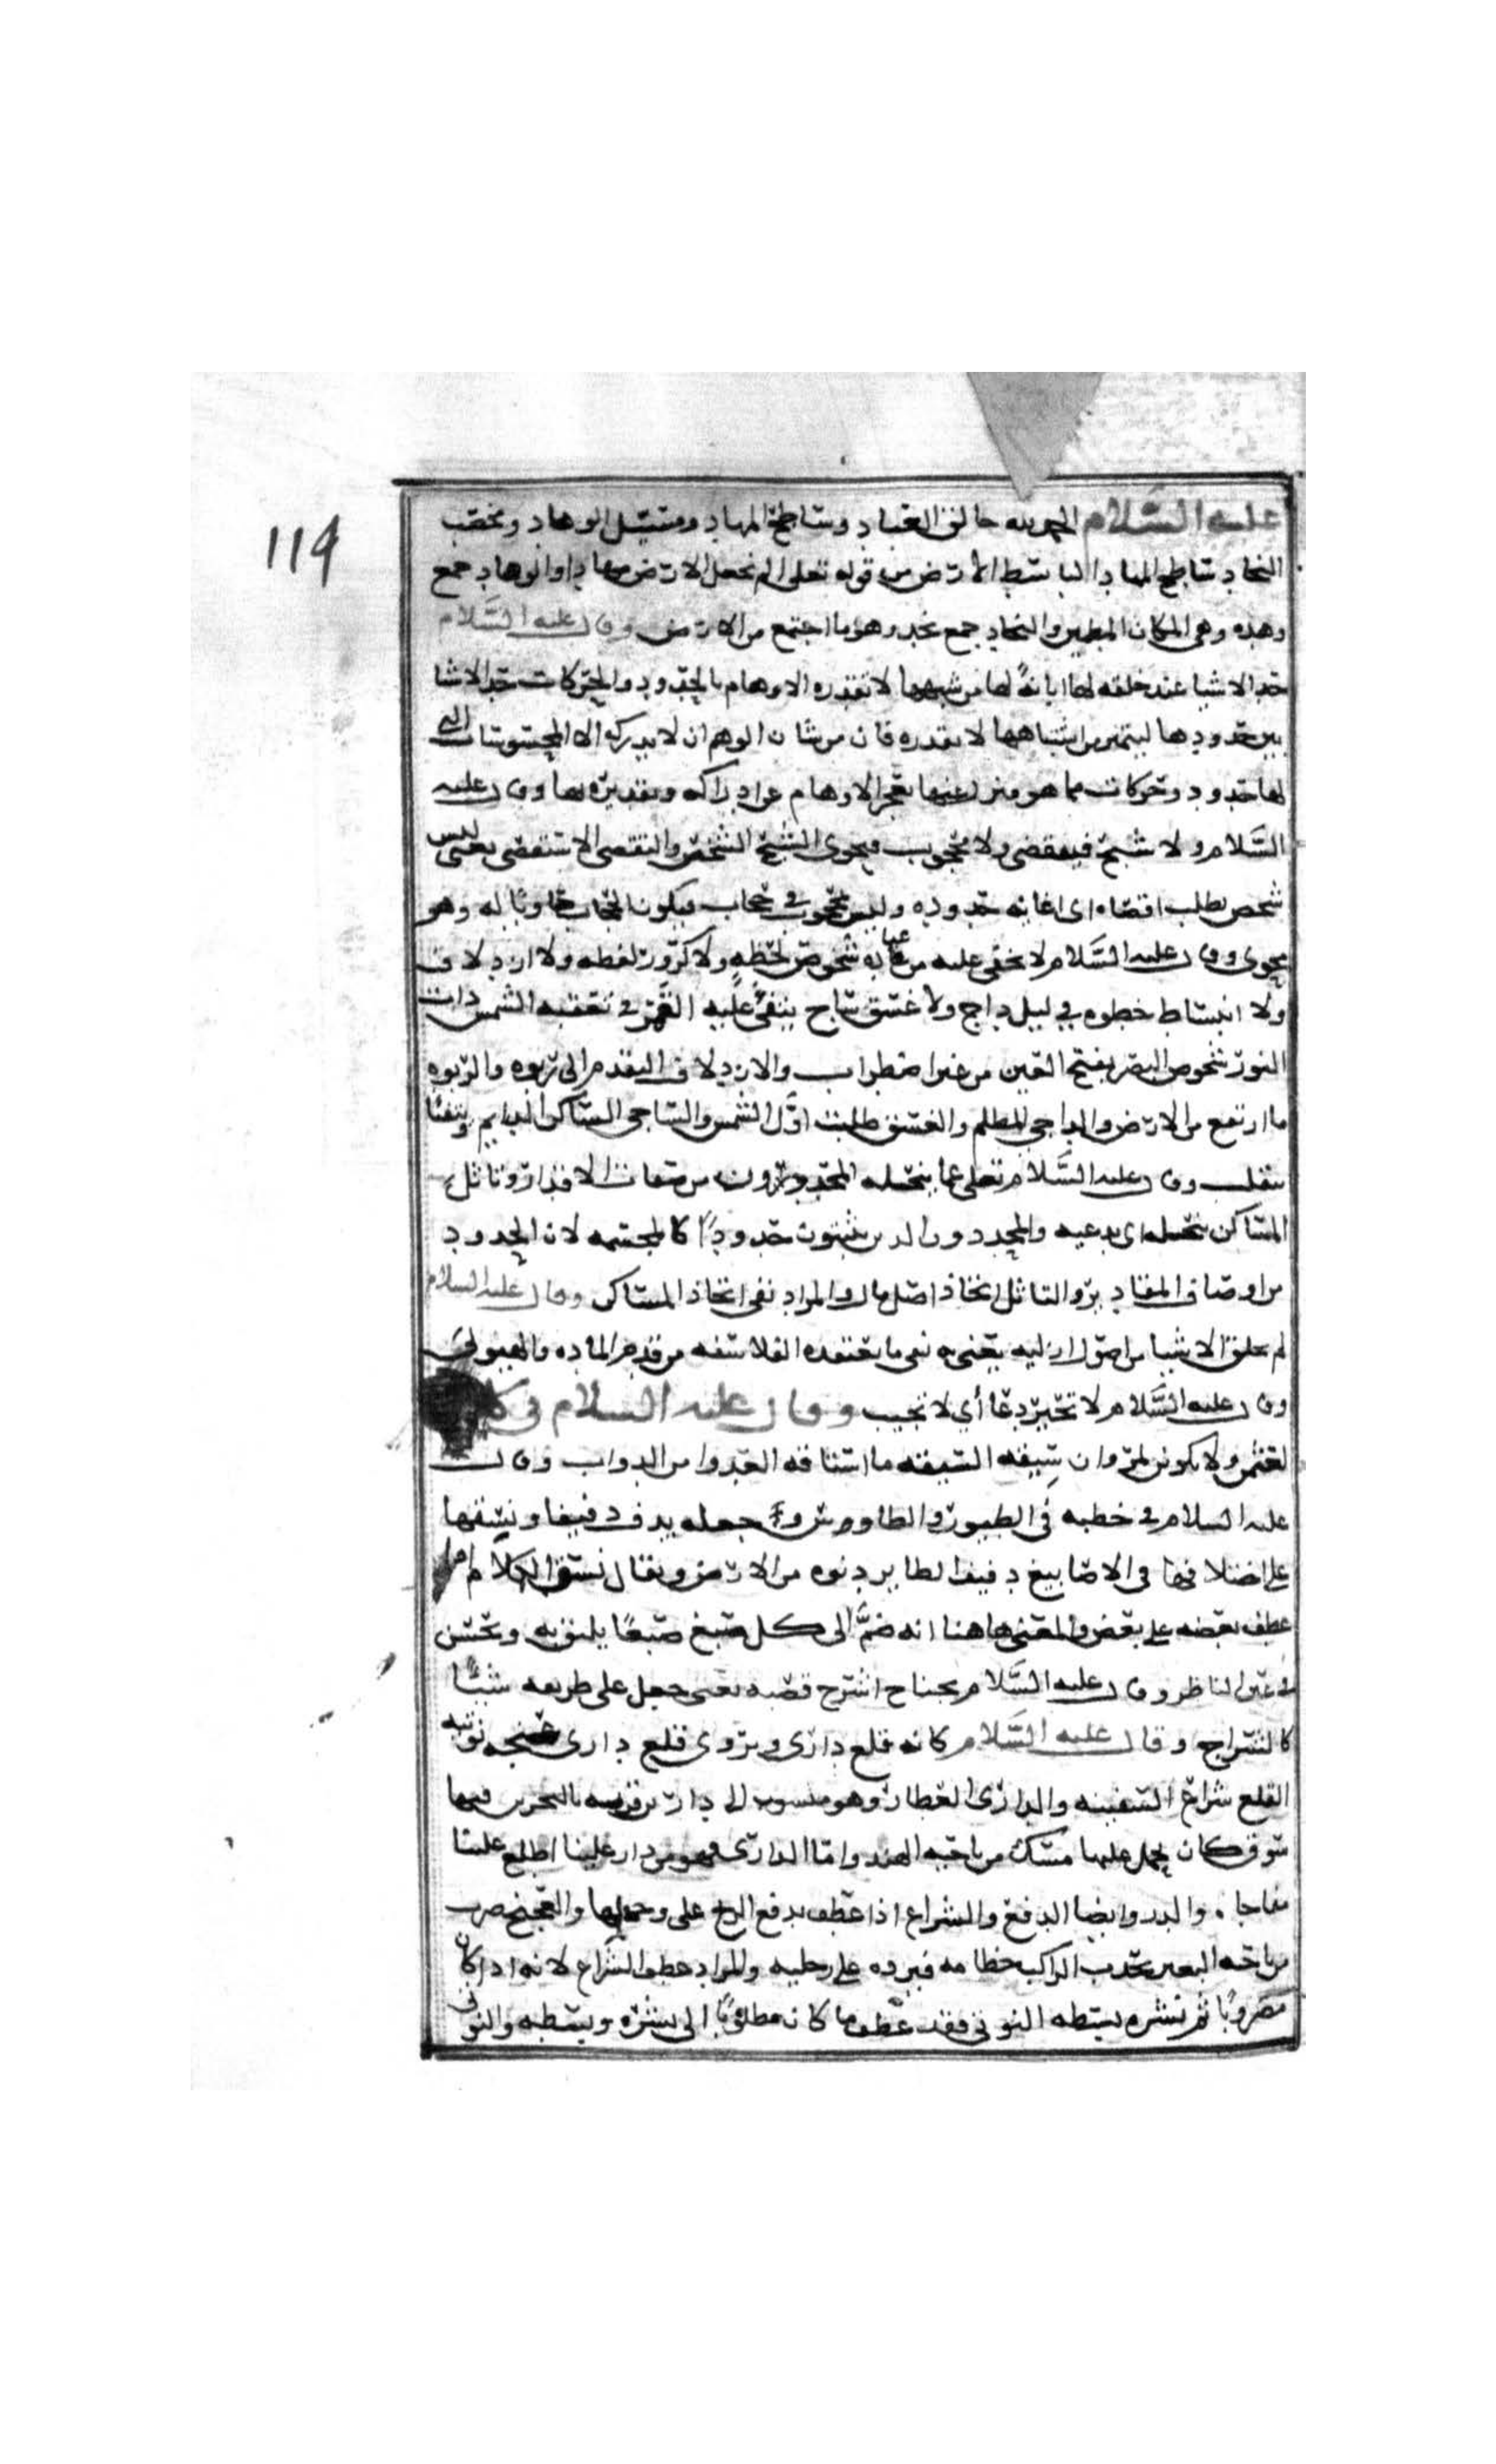 119
عليه السلام الحمد لله خالق العباد وساطح المهاد ومسيل الوهاد ومخصب
النجاد ساطح المهاد الباسط الارض من قوله تعلى الم نجعل الارض مهادا والوهاد جمع
وهده وهي المكان المطمئن والنجاد جمع نجد وهو ما اجتمع من الارض وقال عليه السلام
حد الاشيا عند خلقه لها ابانة لها من شبهها لا تقدره الاوهام بالحدود والحركات حد الاشيا
بين حدودها ليتميز من اشباهها لا تقدره فان من شان الوهم ان لا يدركه الا المحسوسات التي
لها حدود وحركات مما هو منزل عنها تعجز الاوهام عن ادراكه وتقديره بها وقال عليه
السلام ولا شبح فيتقضى ولا محجوب فيحوى الشبح الشخص والتقصى الاستقصى يعنى ليس
شخص يطلب اقصاه اى اغايه حدوده وليس محجوب في حجاب فيكون الحجاب حاويا له وهو
محوى وقال عليه السلام لا يخفى عليه من عباده شخوص لحظه ولا كرور لفظه ولا ازدلاف
ولا انبساط خطوه في ليل داج ولا غسق ساج يتفيأ عليه القمر في تعقبه الشمس ذات
النور شخوص البصر بفتح العين من غير اضطراب والازدلاف التقدم الى ربوه والربوه
ما ارتفع من الارض والداجي المظلم والغسق اول الشمس والساجى الساكن الدايم ويتفيا
يتقلب وقال عليه السلام تعلى عما ينحله المحددون من صفات الاقدار وتاثل
المساكن ينحله اى يدعيه والمحددون الذين يثبتون حدودا كالمجسمه لان الحدود
من اوصاف المقادير والتاثل اتخاذ اصل مال والمراد نفى اتخاذ المساكن وقال عليه السلام
لم يخلق الاشيا من اصول ازليه يعنى به نفى ما يعتقده الفلاسفه من قدم الماده والهيولى
وقال عليه السلام لا تحير دعا أي لا تجيب وقال عليه السلام في
لعثمن ولا تكونن لمروان سيقه السيقه ما استاقه العدو من الدواب وقال
عليه السلام في خطبه في الطيور والطاووس و جعله يدف دفيفا ونسقها
على اختلافها في الاصابيغ دفيف الطاير دنوه من الارض ويقال نسق الكلام اذا
عطف بعضه على بعض والمعنى هاهنا انه ضم الى كل صبغ صبغا يليق به ويحسن
في عين الناظر وقال عليه السلام بجناح اشرج قصبه يعنى جعل على طريقه شيئا
كالشراج وقال عليه السلام كانه قلع دارى ويروى قلع دارى عنجه نوتيه
القلع شراع السفينه والدارى العطار وهو منسوب الى دارين قريه بالبحرين فيها
سوق كان يحمل عليها مسك من ناحيه الهند واما الدارى فهو من دار علينا اطلع علينا
مفاجاه والدرو ايضا الدفع والشراع اذا عطف يدفع الريح على والعنج ضرب
من رياضه البعير يجذب الراكب خطامه فيرده على رجليه والمراد عطف الشراع لانه اذا كان
مضروبا ثم نشره يبسطه النوتي فقد عطف ما كان مطويا الى نشره ويبسطه والنوتي